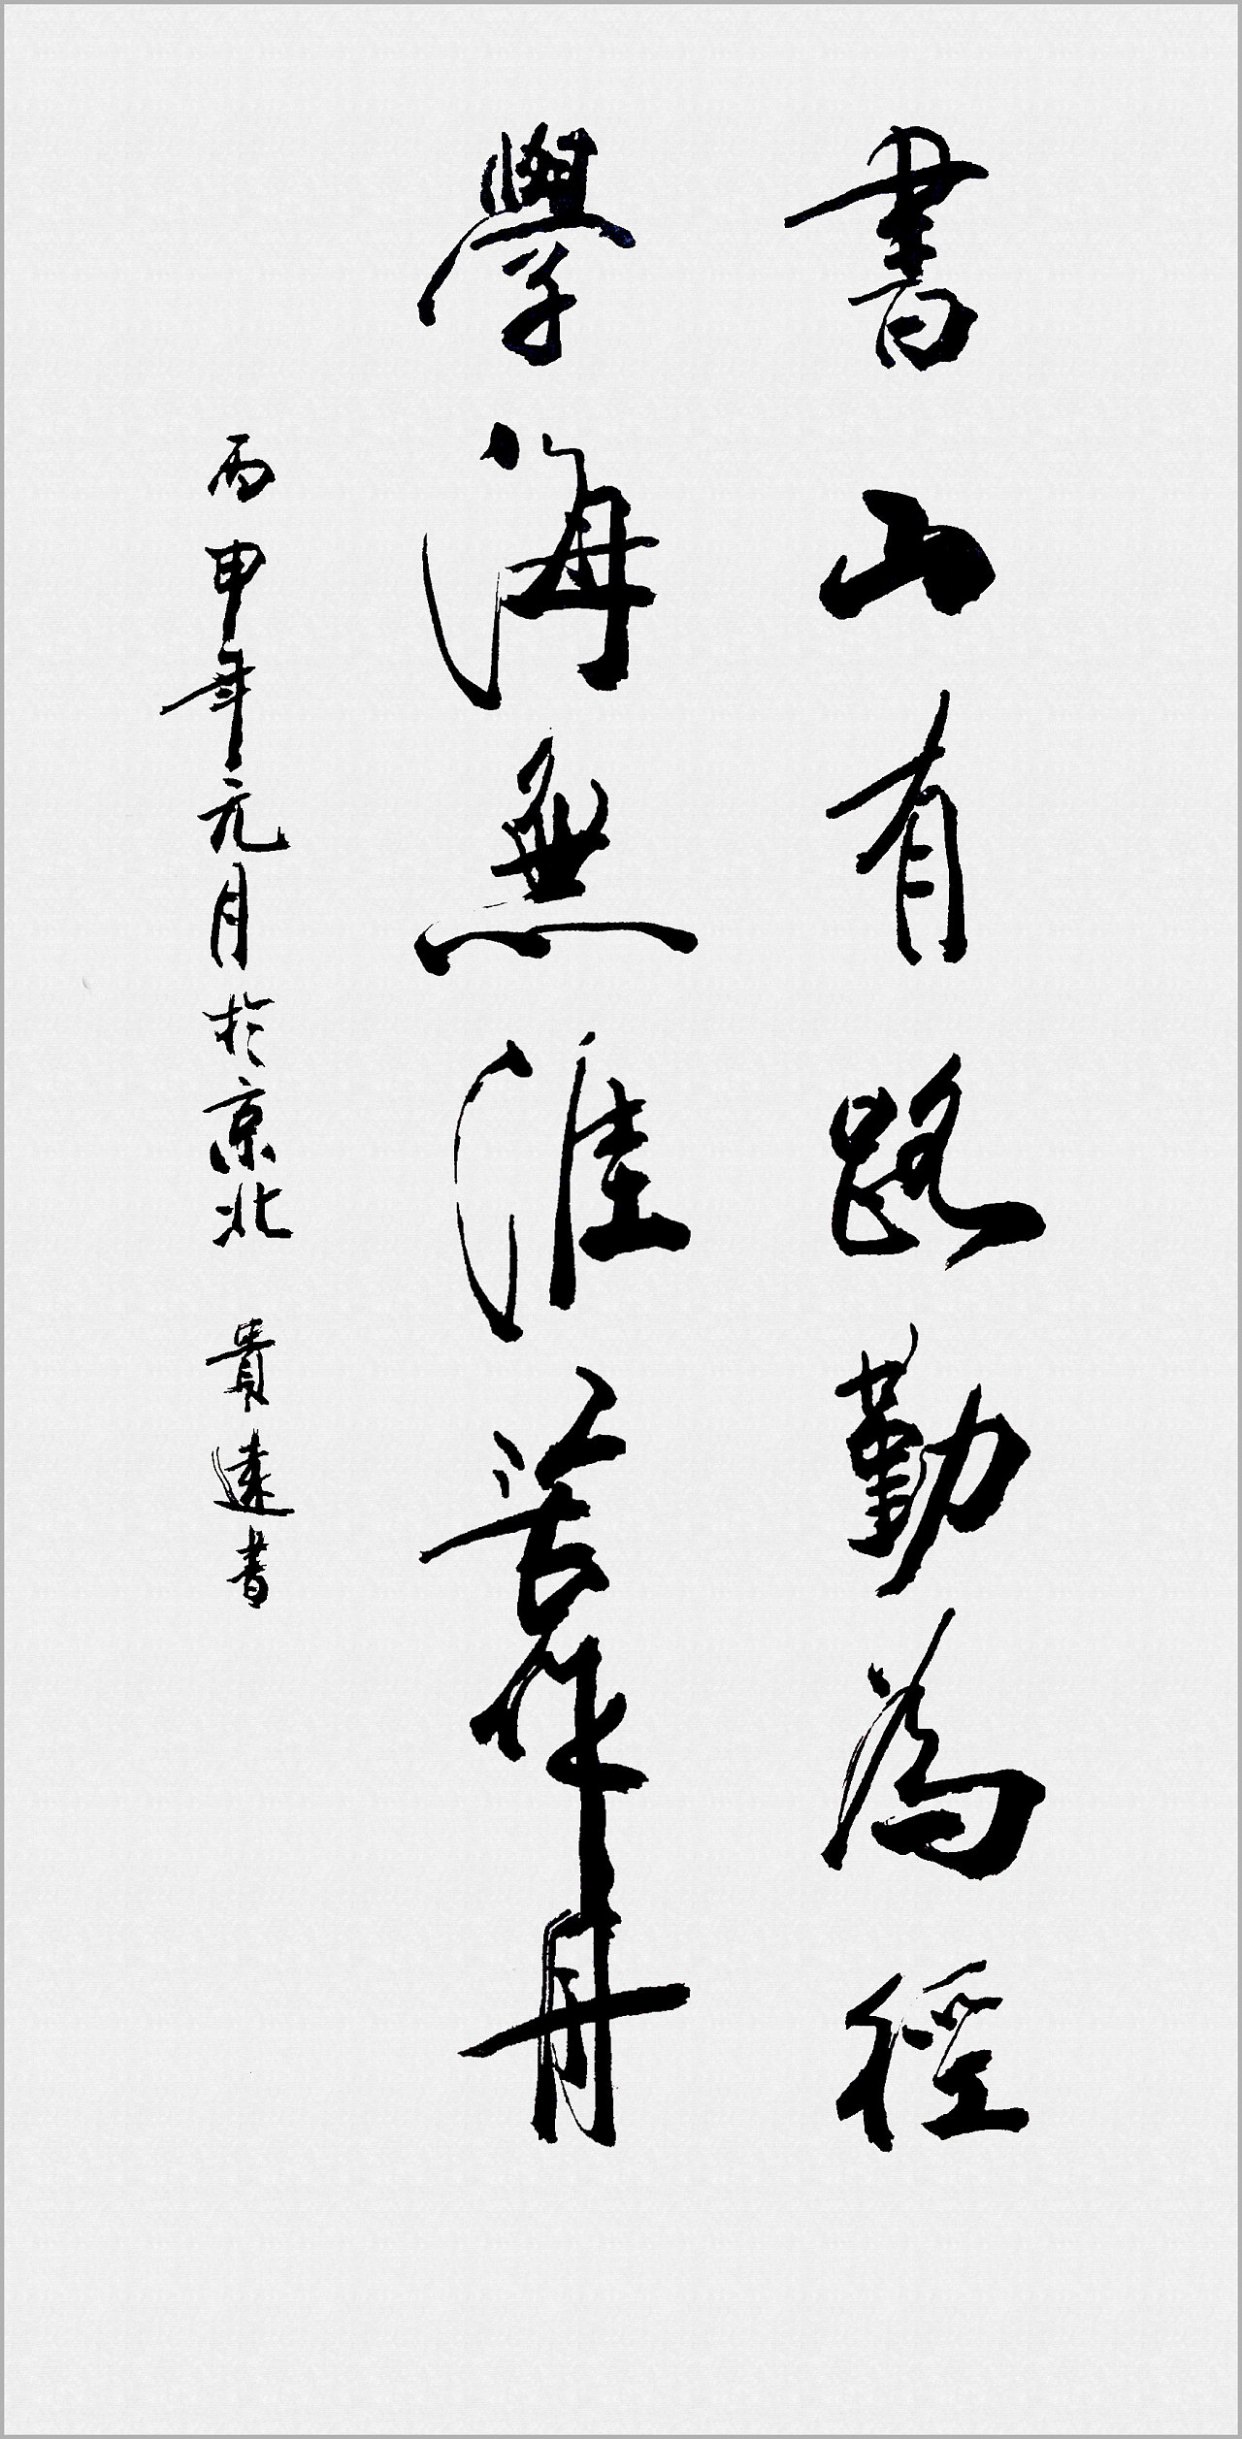 書山有路勤為徑
學海無涯苦作舟
丙申年元月於京北 貴遠書